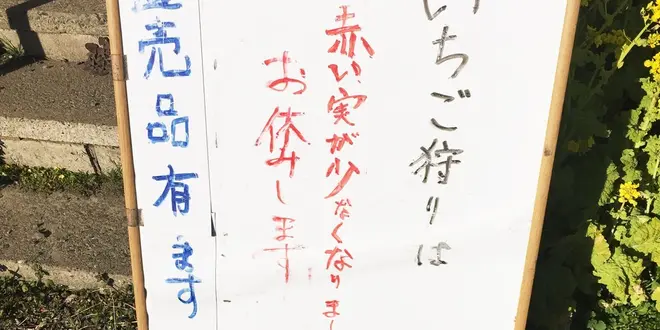 いちご狩りは
赤い実が少なくなりまし
お休みします
売品有ます